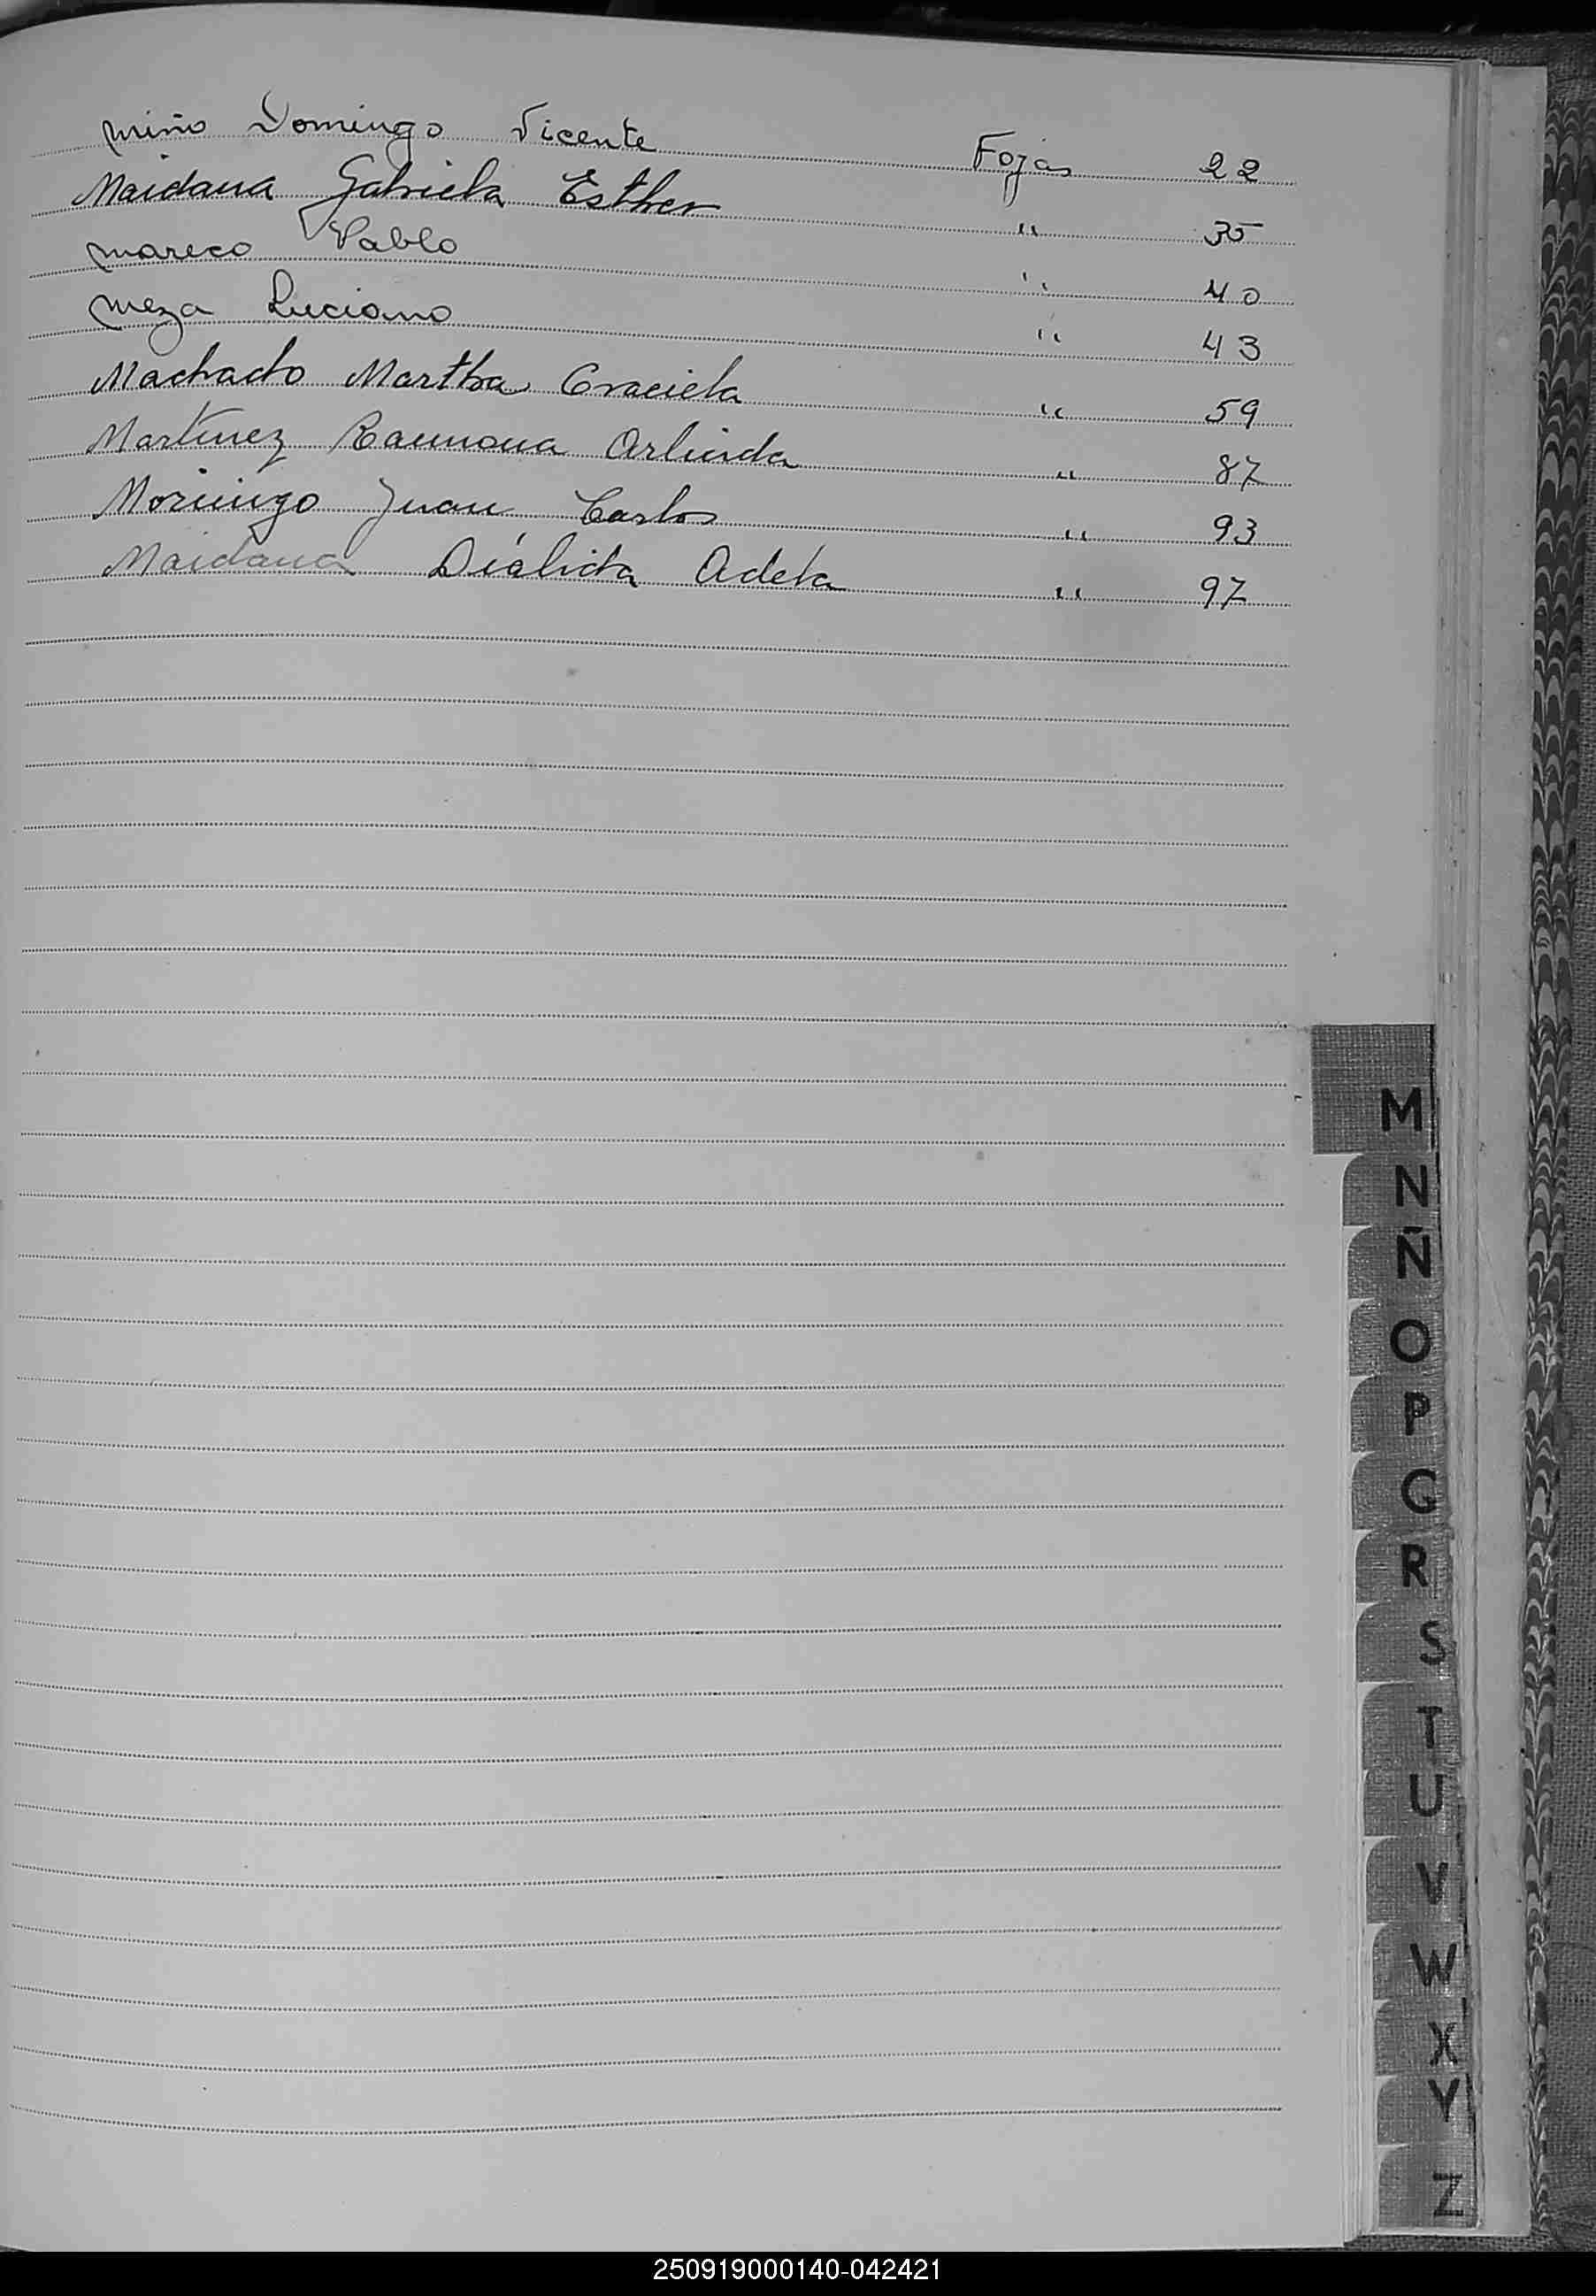 Miño Domingo Vicente Fojas 22
Maidana Gabriela Esther " 35
Mareco Pablo " 40
Meza Luciano " 43
Machado Martha Graciela " 59
Martinez Ramona Arlinda " 87
Moringo Juan Carlos " 93
Maidana Diálida Adela " 97
M
N
Ñ
O
P
Q
R
S
T
U
V
W
X
Y
Z
250919000140-042421